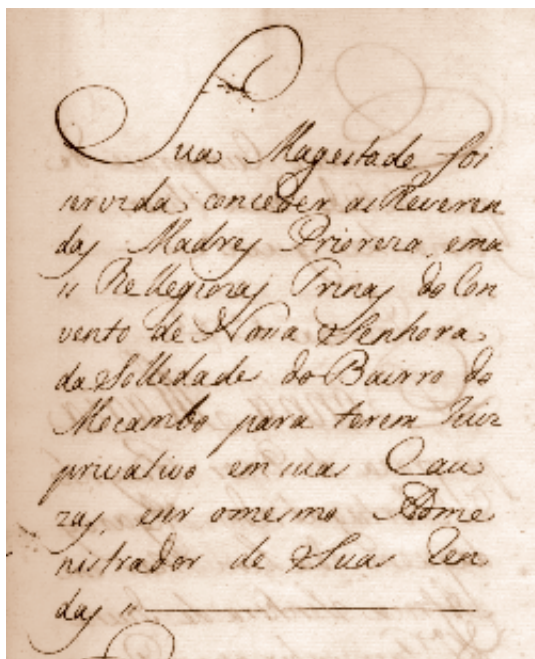 Sua Magestade foi
servida conceder as Reveren
das Madres Prioreza, e ma
is Rellegiozas Trinas do Con
vento de Nosa Senhora
da Solledade do Bairro do
Mocambo para terem Juiz
privativo em sua Cau
zas, eser omesmo Adme
nistrador de Suas Ren
das